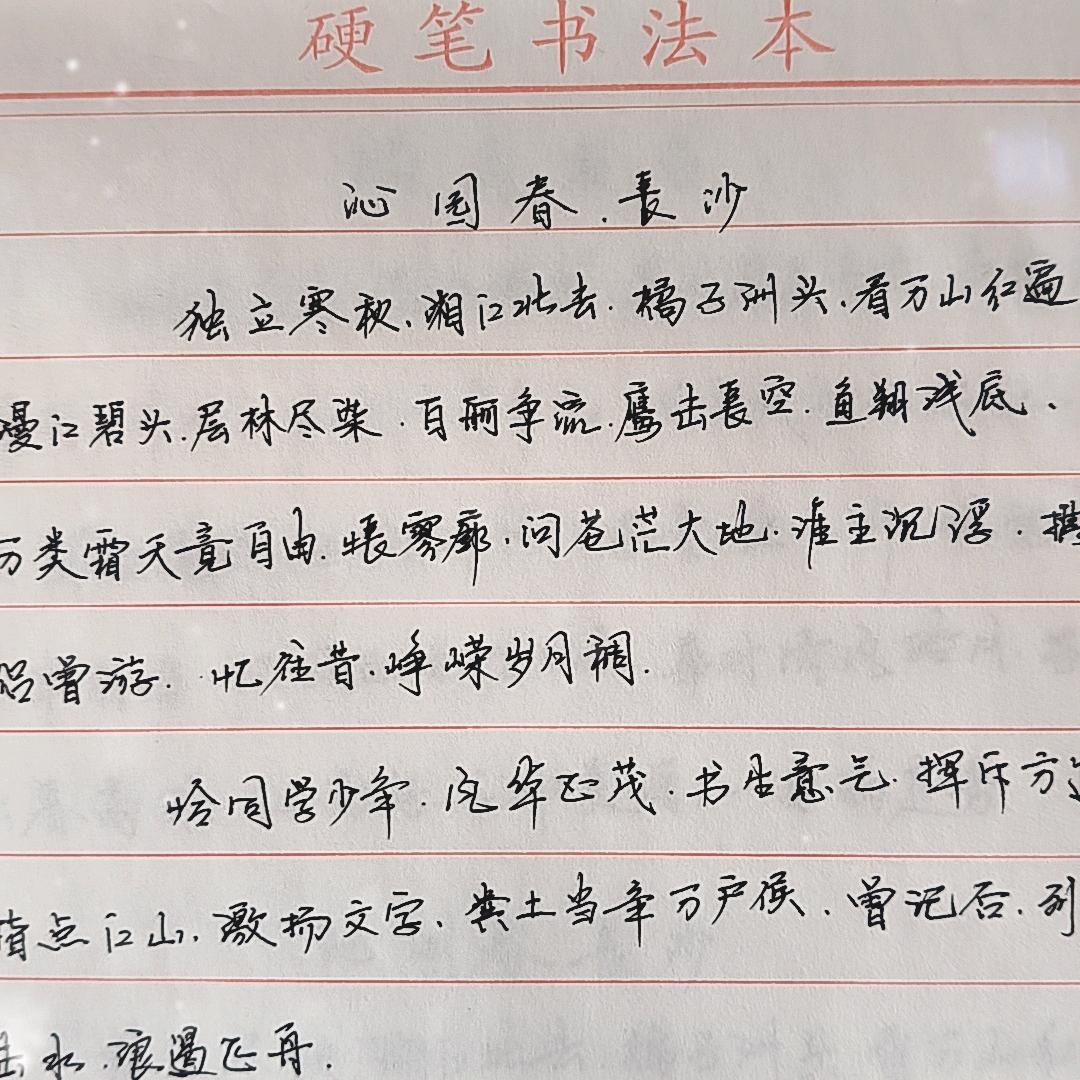 硬笔书法本
沁园春.長沙
独立寒秋.湘江北去.橘子洲头.看万山红遍
漫江碧头.层林尽染.百舸争流.鹰击長空.鱼翔浅底.
万类霜天竟自由.怅寥廓.问苍茫大地.谁主沉浮.携
侣曾游.忆往昔.峥嵘岁月稠.
恰同学少年.风华正茂.书生意气.挥斥方遒
指点江山.激扬文字.粪土当年万户侯.曾记否.到
击水.浪遏飞舟.